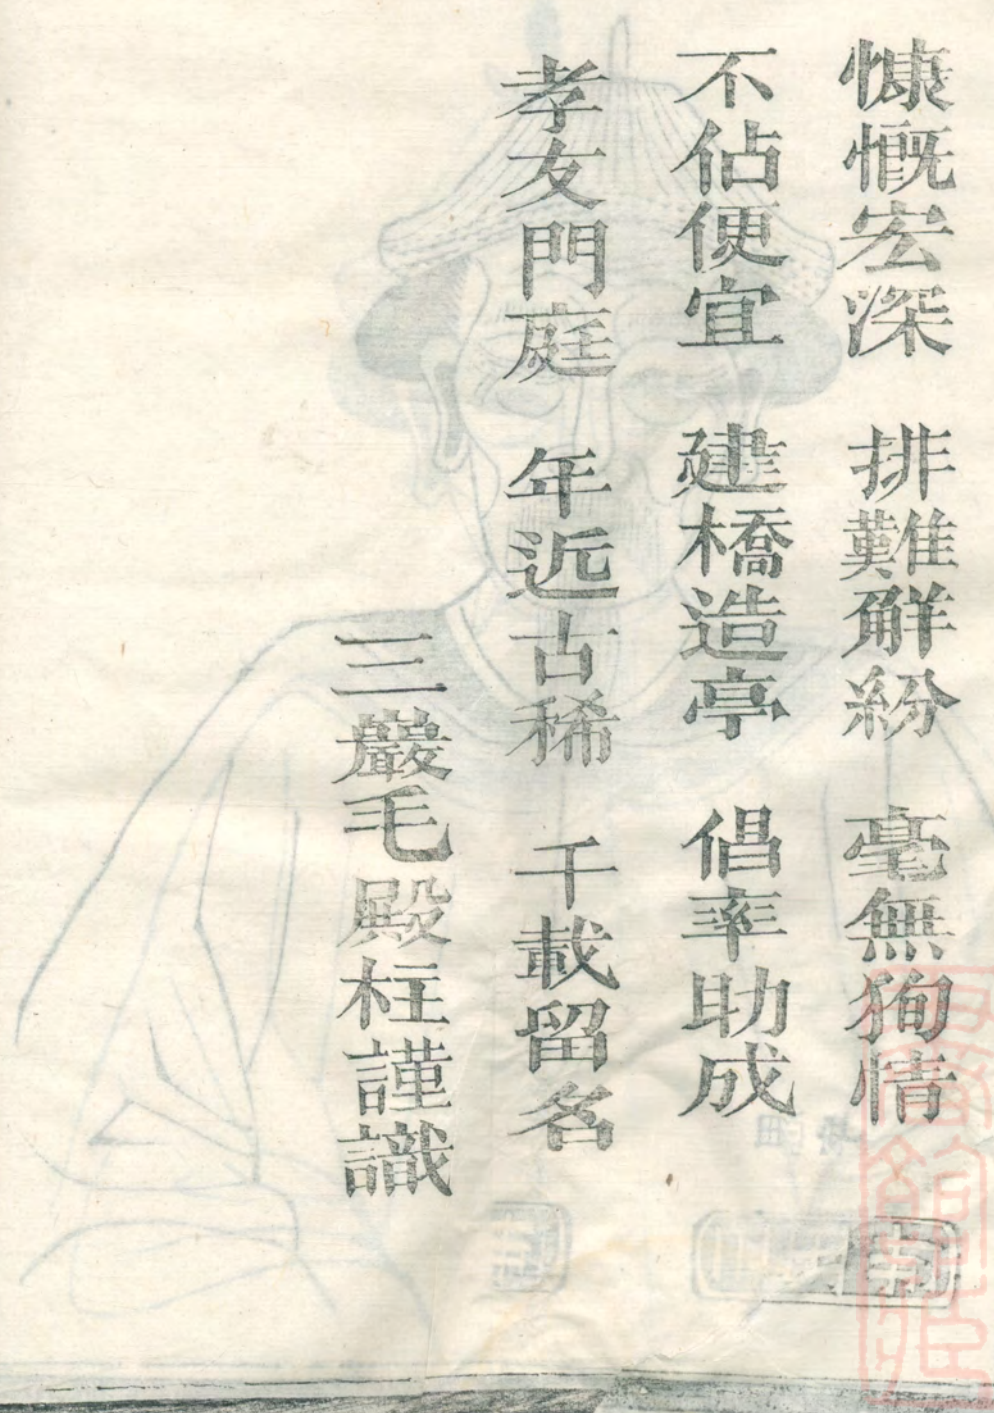 慷慨宏深 排難觧紛 毫無狥情
不佔便宜 建橋造亭 倡率助成
孝友門庭 年近古稀 千載留名
三巖毛殿柱謹識